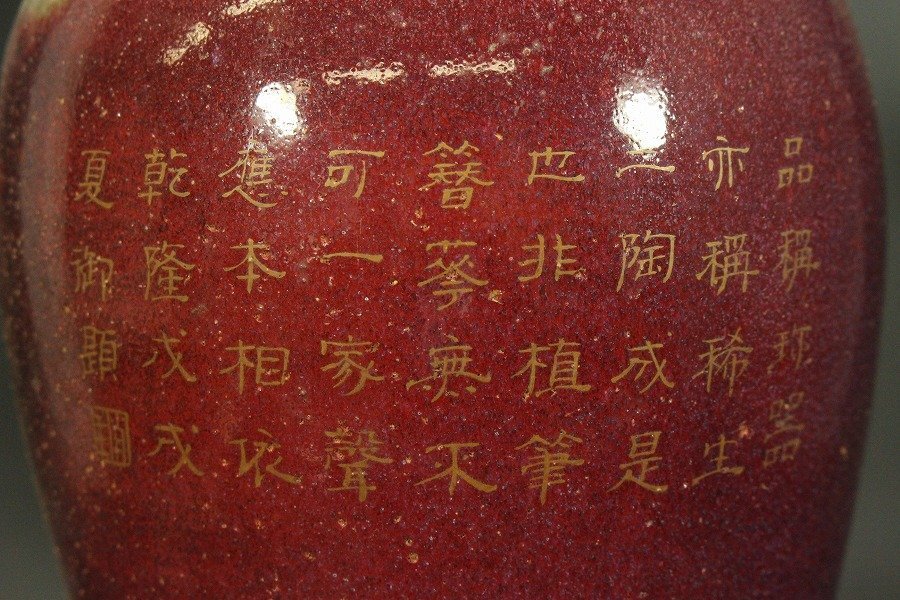 品稱珎器
亦稱稀生
二陶成是
也非植筆
簪蓡無不
可一家聲
應本相依
乾隆戊戌
夏御題